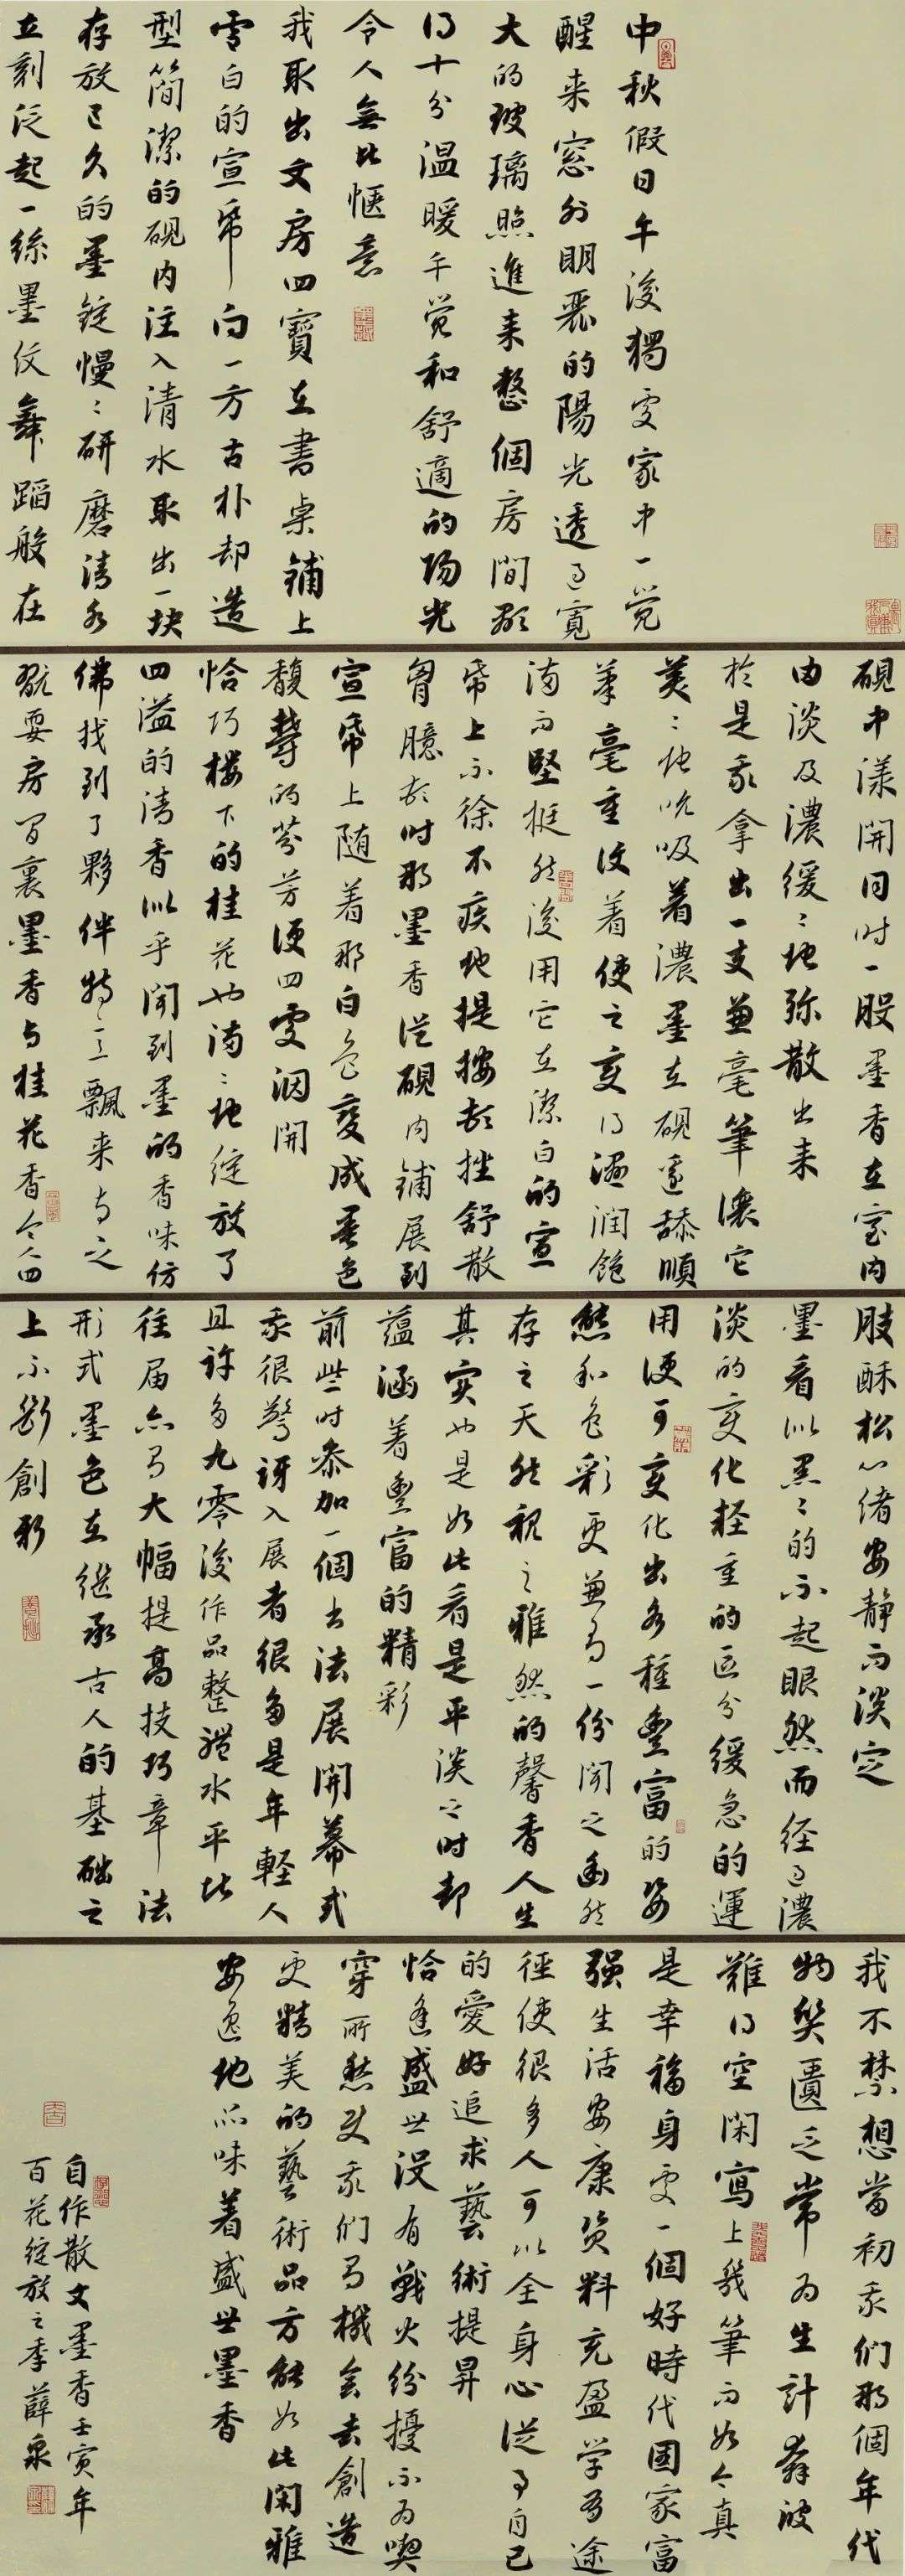 中秋假日午後獨處家中一觉
醒来窓外明麗的陽光透过寬
大的玻璃照進来整個房間都
得十分温暖午觉和舒適的陽光
令人無比惬意
我取出文房四寶在書桌鋪上
雪白的宣紙向一方古朴却造
型簡潔的硯内注入清水取出一块
存放已久的墨錠慢〻研磨清水
立刻泛起一絲墨纹舞蹈般在
硯中漾開同时一股墨香在室内
由淡及濃缓〻地弥散出来
於是我拿出一支兼毫筆讓它
美〻地吮吸着濃墨在硯邊舔順
筆毫重複着使之变得温潤飽
满而堅挺然後用它在潔白的宣
紙上不徐不疾地提按頓挫舒散
胷臆頓时那墨香從硯内鋪展到
宣紙上随着那白色變成墨色
馥馨的芬芳便四處洇開
恰巧楼下的桂花也满〻地绽放了
四溢的清香似乎聞到墨的香味仿
佛找到了夥伴特意飘来与之
戲耍房间裏墨香与桂花香令人四
肢酥松心绪安静而淡定
墨看似黑〻的不起眼然而经过濃
淡的变化軽重的区分缓急的運
用便可变化出各種豐富的姿
態和色彩更兼有一份聞之幽然
存之天然視之雅然的馨香人生
其实也是如此看是平淡之时却
藴涵着豐富的精彩
前些时参加一個书法展開幕式
我很驚讶入展者很多是年軽人
且许多九零後作品整體水平比
往届亦有大幅提高技巧章法
形式墨色在继承古人的基础之
上不断創新
我不禁想當初我们那個年代
物資匮乏常为生計奔波
難得空閑寫上幾筆而如今真
是幸福身處一個好時代國家富
强生活安康资料充盈学习途
徑使很多人可以全身心從事自己
的愛好追求藝術提昇
恰逢盛世没有戰火纷擾不为喫
穿所愁使我们有機会去創造
更精美的藝術品方能如此閑雅
安逸地品味着盛世墨香
自作散文墨香壬寅年
百花绽放之季薛泉